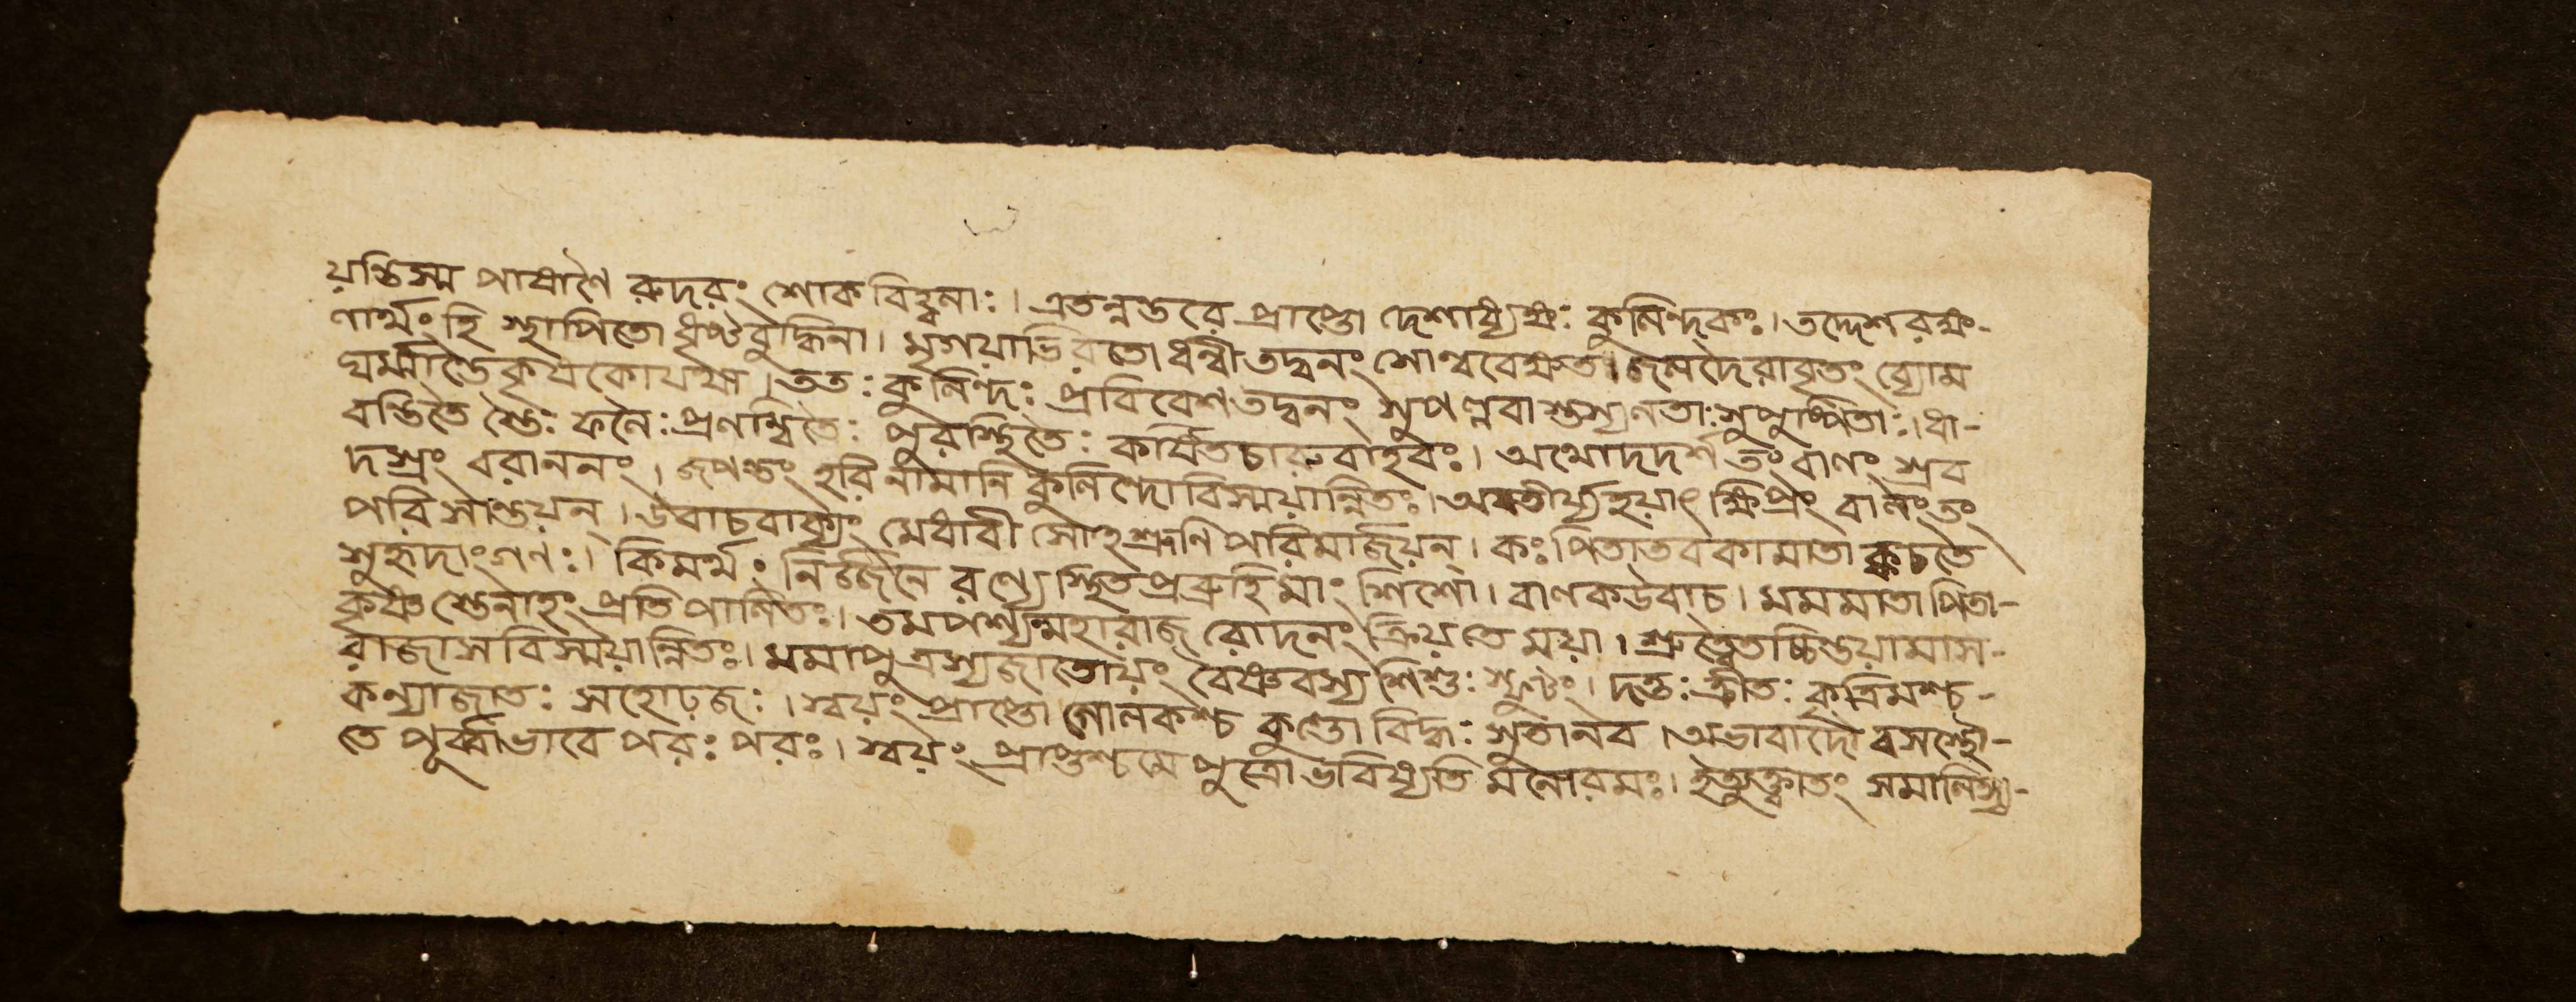 য়ন্তিস্ম পাষাণৈ রুদরং শোক বিহ্বলাঃ। এতস্মন্তরে প্রাপ্তো দেশাধ্যক্ষঃ কুলিন্দকঃ। তদ্দেশরক্ষ-
ণার্থং হি স্থাপিতো ধৃষ্টবুদ্ধিনা। মৃগয়াভিরতো ধন্বী তদ্বনং শোন্ববেক্ষত। জলদৈরাবৃতং ব্যোম
ঘর্ম্মার্ত্তৈ কৃষকো যথা। ততঃ কুলিন্দঃ প্রবিবেশ তদ্বনং সুপল্লবা স্তস্যলতাঃ সুপুষ্পিতাঃ। ধা-
বন্তিতৈ স্তৈঃ ফলৈঃ প্রলম্বিতৈঃ পুরস্থিতৈঃ কর্ষিতচারুবাহবঃ। অথোদদর্শ তং বালং শ্রব
দশ্রং বরাননং। জপন্তং হরি নামানি কুলিন্দো বিস্ময়ান্বিতঃ। অবতীর্য্য হয়াৎ ক্ষিপ্রং বালং তং
পরিসান্ত্বয়ন্। উবাচ বাক্যং মেধাবী সোহশ্রুণি পরিমার্জয়ন্। কঃ পিতা তব কা মাতা ক্ব চ তে
সুহৃদাং গণঃ। কিমর্থং নির্জ্জনে রণ্যে স্থিত প্রব্রুহি মাং শিশো। বালক উবাচ। মম মাতা পিতা-
কৃষ্ণ স্তেনাহং প্রতিপালিতঃ। তমপশ্যন্মহারাজ রোদনং ক্রিয়তে ময়া। শ্রুত্বৈতচ্চিন্তয়ামাস-
রাজা স বিস্ময়ান্বিতঃ। মমাপুত্রস্য জাতোয়ং বৈষ্ণবস্য শিশুঃ স্ফুটং। দত্তঃ ক্রীতঃ কৃত্রিমশ্চ-
কন্যাজাতঃ সহোঢ়জঃ। স্বয়ং প্রাপ্তো গোলকশ্চ কুণ্ডো বিদ্ধঃ সুতানব। অভাবাদৌ রসস্থৌ-
তে পূর্ব্বাভাবে পরঃ পরঃ। স্বয়ং প্রাপ্তশ্চ মে পুত্রো ভবিষ্যতি মনোরমঃ। ইত্যুক্ত্বা তং সমালিঙ্গ্য-